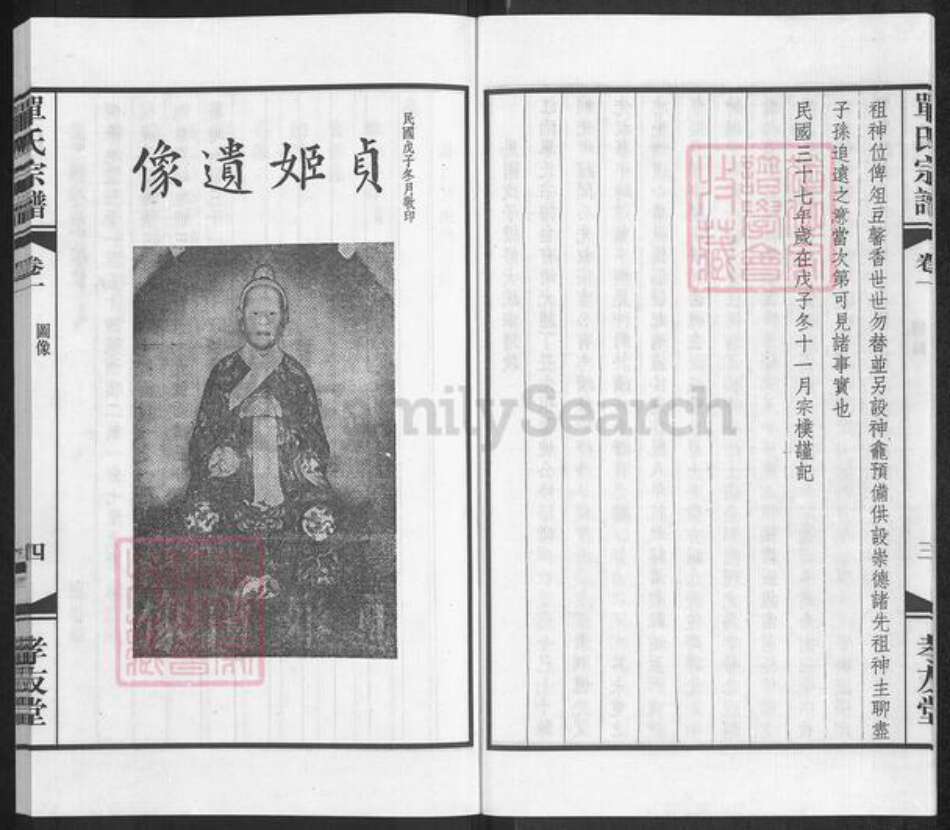 單氏宗譜
卷一
三
孝友堂
祖神位俾俎豆馨香世世勿替並另設神龕預備供設崇德諸先祖神主聊盡
子孫追遠之意當次第可見諸事實也
民國三十七年歲在戊子冬十一月宗樸謹記
民國戊子冬月敬印
貞姬遺像
單氏宗譜
卷一
圖像
四
孝友堂
FamilySearch